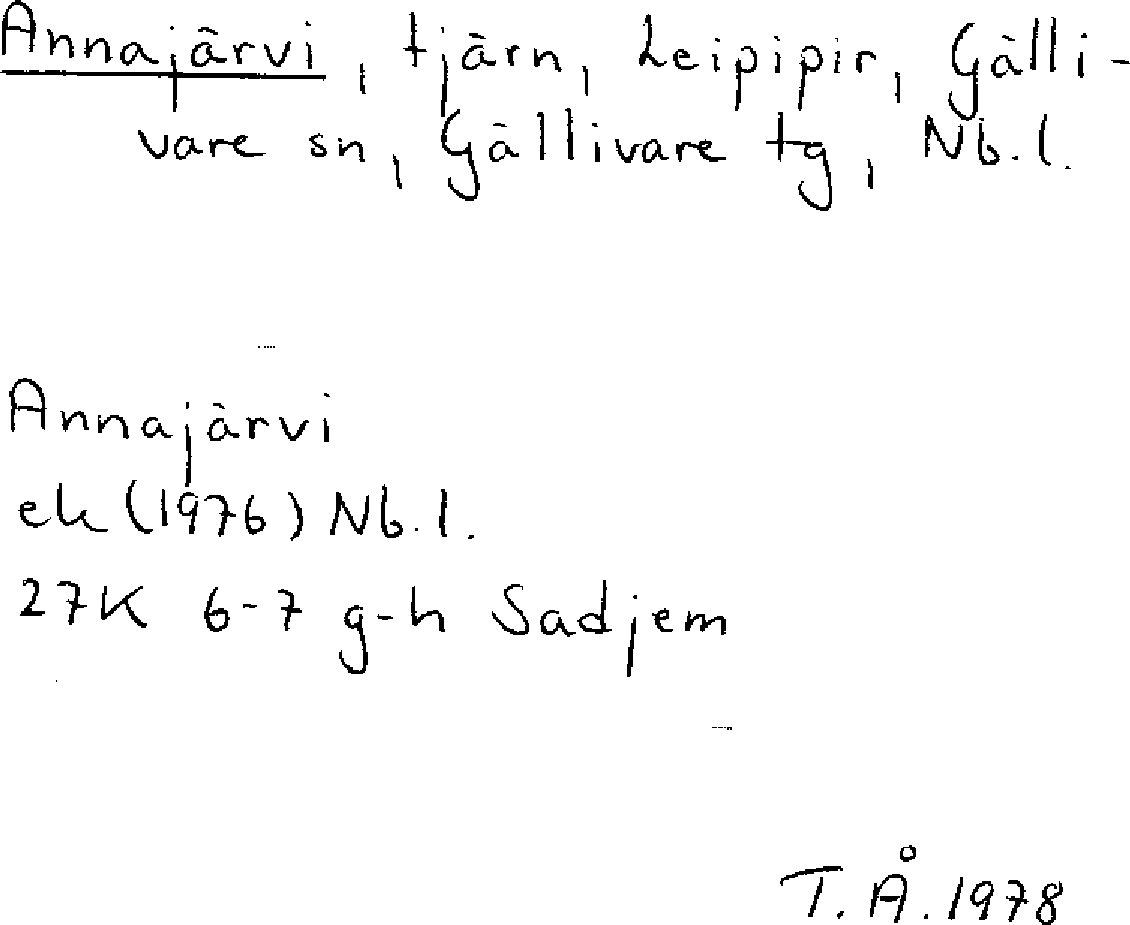 Annajärvi, tjärn, Leipipir, Gälli-
vare sn, Gällivare tg, Nb.l.
Annajärvi
ek (1976) Nb.l.
27K 6-7 g-h Sadjem
T.Å. 1978